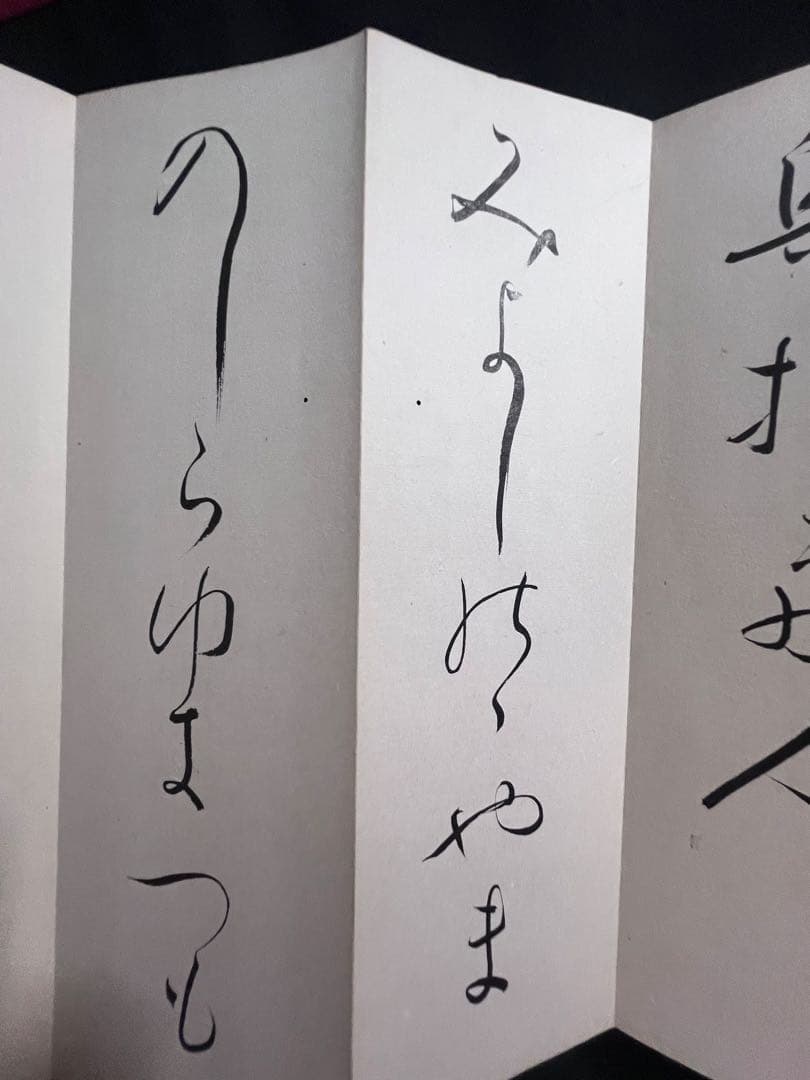 みよしのゝやま
のしらゆきつも